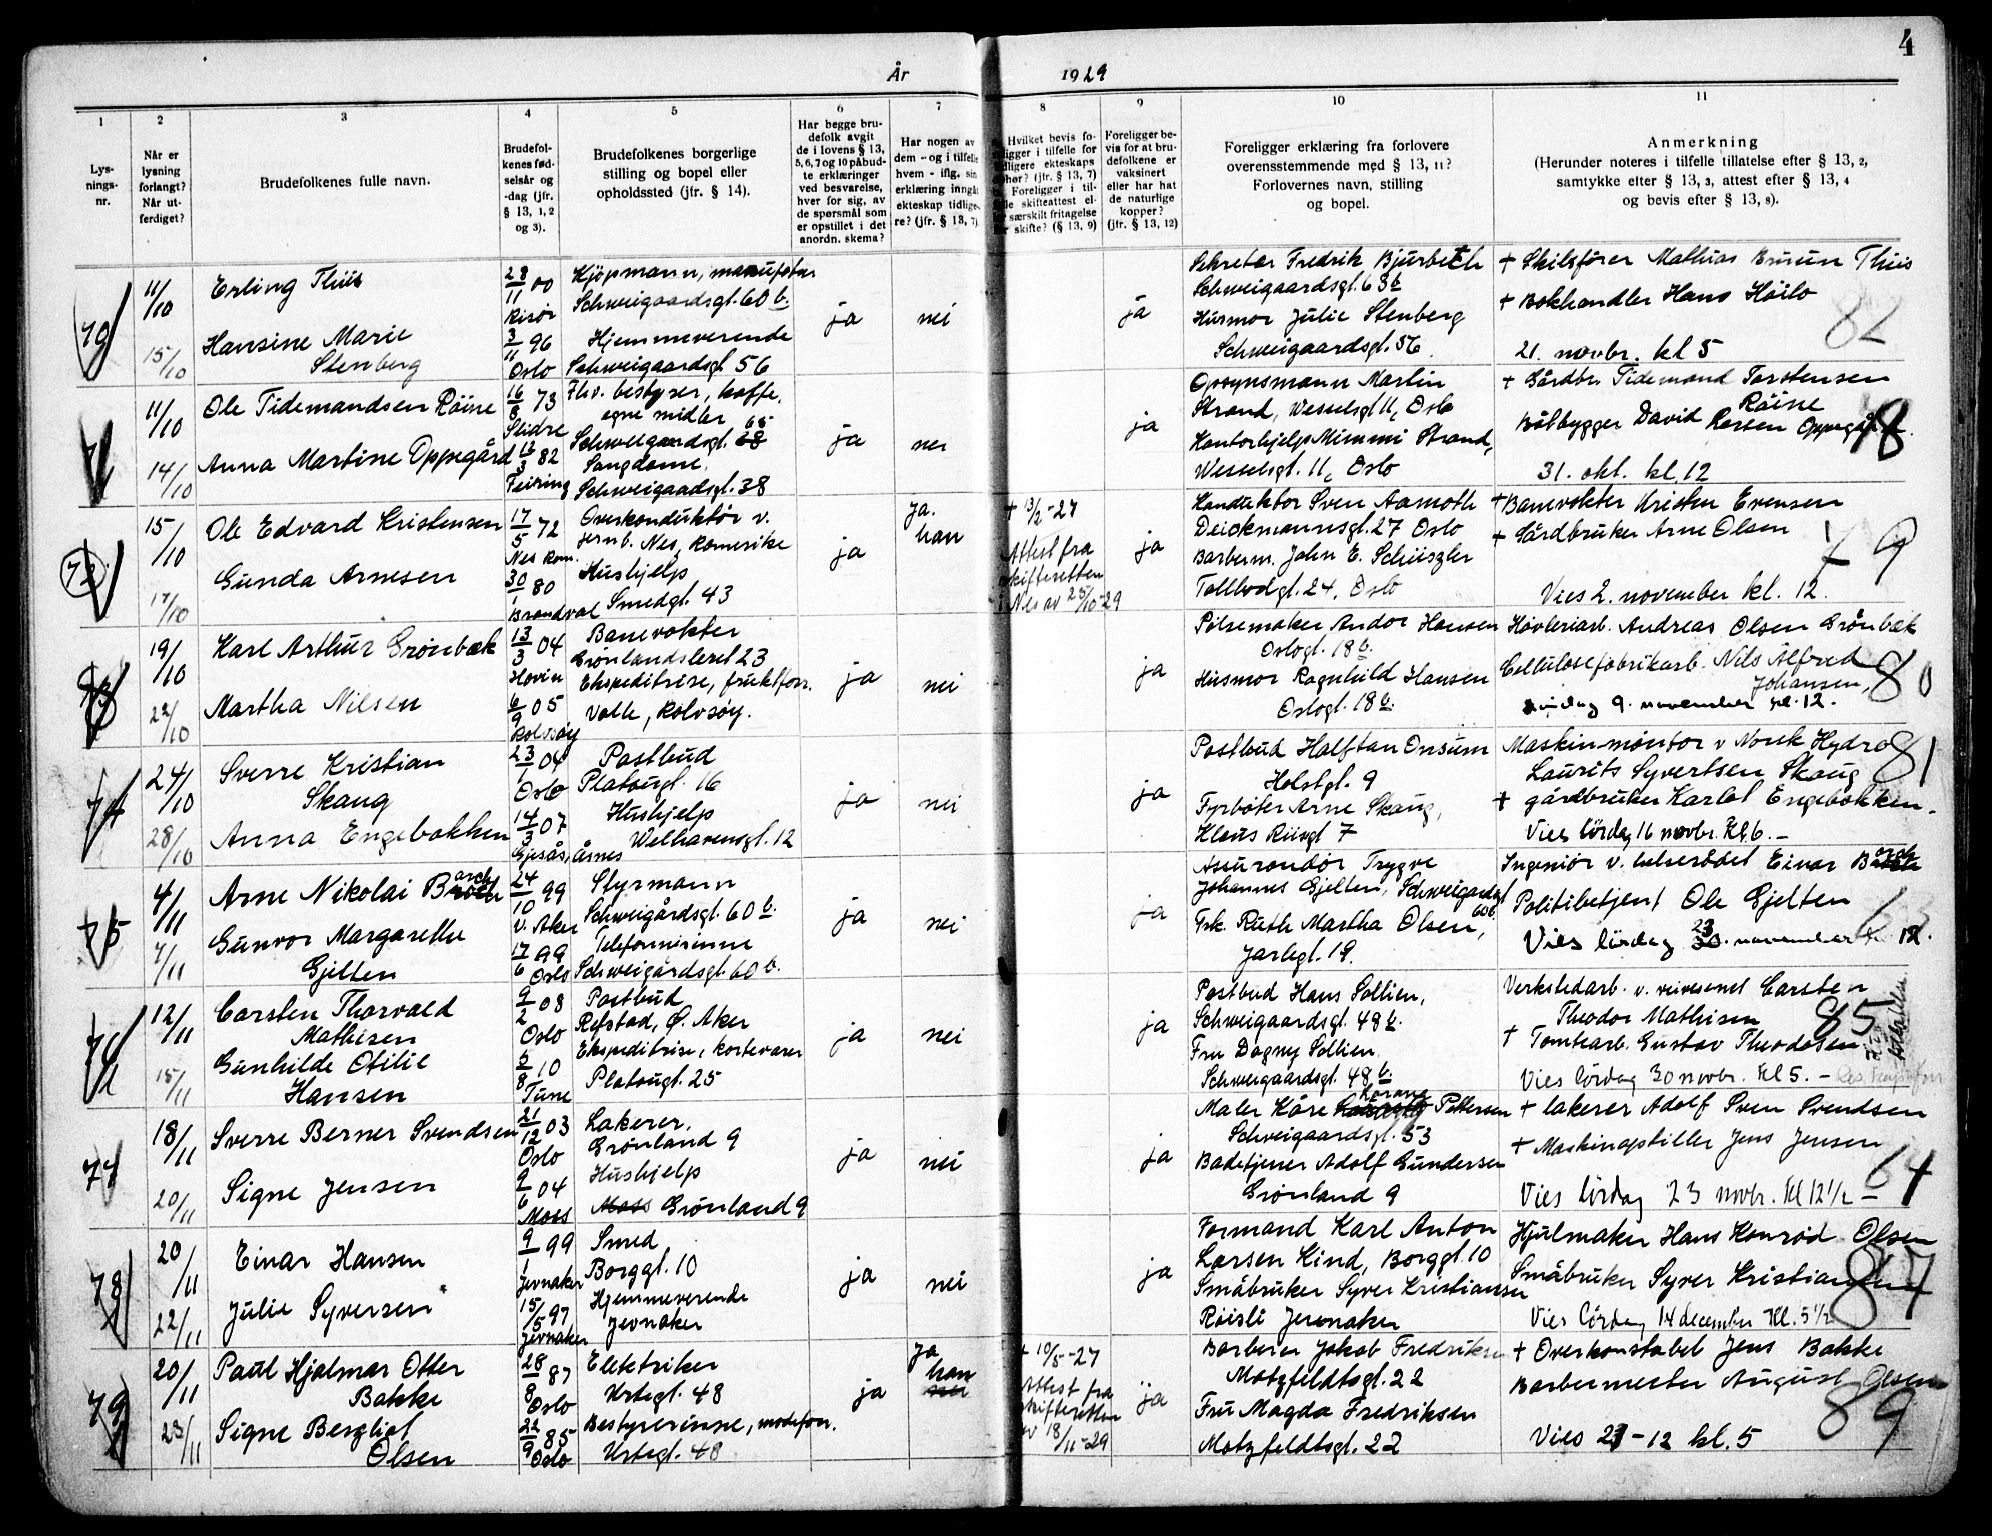 4
År 1929
1 2 3 4 5 6 7 8 9 10 11
Lysnings-nr.
Når er lysning forlangt? Når utferdiget?
Brudefolkenes fulle navn.
Brudefolkenes fødselsår og -dag (jfr. § 13, 1, 2 og 3).
Brudefolkenes borgerlige stilling og bopel eller opholdssted (jfr. § 14).
Har begge brudefolk avgit de i lovens § 13, 5, 6, 7 og 10 påbudte erklæringer ved besvarelse, hver for sig, av de spørsmål som er opstillet i det anordn. skema?
Har nogen av dem - og i tilfelle hvem - iflg. sin erklæring inngått ekteskap tidligere? (jfr. § 13, 7)
Hvilket bevis foreligger i tilfelle for tidligere ekteskaps ophør? (jfr. § 13, 7) Foreligger i tilfelle skifteattest eller særskilt fritagelse for skifte? (§ 13, 9)
Foreligger bevis for at brudefolkene er vaksinert eller har hat de naturlige kopper? (jfr. § 13, 12)
Foreligger erklæring fra forlovere overensstemmende med § 13, 11? Forlovernes navn, stilling og bopel.
Anmerkning
(Herunder noteres i tilfelle tillatelse efter § 13, 2, samtykke efter § 13, 3, attest efter § 13, 4 og bevis efter § 13, 8).
70
11/10
15/10
Erling Thiis
Hansine Marie
Stenberg
28/11 00
Risør
3/11 96
Oslo
Kjøpmann, manufaktur
Schweigaardsgt. 60 b.
Hjemmeværende
Schweigaardsgt 56
ja
nei
ja
Sekretær Fredrik Bjurbeth
Schweigaardsgt. 63 b
Husmor Julie Stenberg
Schweigaardsgt. 56
+ Skibsfører Mathias Bruun Thiis
+ Bokhandler Hans Høilo
21. novbr. kl 5
82
71
11/10
14/10
Ole Tidemandsen Røine
Anna Martine Oppegård
16/8 73
Slidre
12/3 82
Feiring
Fhv. bestyrer, kaffe,
egne midler 65
Schweigaardsgt. 38
Sangdame.
Schweigaardsgt. 38
ja
nei
ja
Opsynsmann Martin
Strand, Wesselsgt 11, Oslo
Kontorhjelp Mimmi Strand,
Wesselsgt. 11, Oslo
+ Gårdbr. Tidemand Torstensen
Røine
Båtbygger David Larsen Oppegård.
31. okt. kl. 12
78
72
15/10
17/10
Ole Edvard Kristensen
Gunda Arnesen
17/5 72
Nes Rom.
30/1 80
Brandval
Overkonduktør v.
jernb. Nes, Romerike
Hushjelp
Smedgt. 43
ja
Ja.
han
+ 13/2-27
Attest fra
skifteretten
i Nes av 25/10-29
ja
Konduktør Sven Aamoth
Deickmannsgt. 27 Oslo
Barberm. John E. Schüszler
Tollbodgt. 24, Oslo
+ Banevokter Kristen Evensen
+ Gårdbruker Arne Olsen
Vies 2. november kl. 12.
79
73
19/10
22/10
Karl Arthur Grønbæk
Martha Nilsen
13/3 04
Hovin
6/9 05
Rolvsøy
Banevokter
Grønlandsleret 23
Ekspeditrise, fruktforr.
Valle, Rolvsøy.
ja
nei
ja
Pølsemaker Andor Hansen
Oslogt. 18 b.
Husmor Ragnhild Hansen
Oslogt. 18 b.
Høvleriarb. Andreas Olsen Grønbæk
Cellulosefabrikarb. Nils Alfred
Johansen,
lørdag 9. november kl. 12.
80
74
24/10
28/10
Sverre Kristian
Skaug
Anna Engebakken
23/1 04
Oslo
14/3 07
Gjesås, Åsnes
Postbud
Platougt. 16
Hushjelp
Welhavensgt. 12
ja
nei
ja
Postbud Halftan Onsum
Holstgt. 9
Fyrbøter Arne Skaug,
Klaus Riisgt 7
Maskinmøntør v Norsk Hydro
Laurits Syvertsen Skaug
+ gårdbruker Karl Engebakken.
Vies lørdag 16 novbr. Kl. 6. –
81
75
4/11
7/11
Arne Nikolai Barch
Gunvor Margarethe
Gjelten
24/10 99
V. Aker
17/6 99
Oslo
Styrmann
Schweigårdsgt. 60 b.
Telefonisinne
Schweigårdsgt. 60 b.
ja
nei
ja
Assurandør Trygve
Johannes Gjelten, Schweigardsgt
60 b.
Frk. Ruth Martha Olsen,
Jarlegt. 19.
Ingeniør v. helserådet Einar Barch
Politibetjent Ole Gjelten
Vies lørdag 23. november kl. 12.
76
12/11
15/11
Carsten Thorvald
Mathisen
Gunhilde Otilie
Hansen
9/2 08
Oslo
5/8 10
Tune
Postbud
Refstad, Ø. Aker
Ekspeditrise, kortevarer
Platougt. 25
ja
nei
ja
Postbud Hans Sollien,
Schweigaardsgt. 48 b.
Fru Dagny Sollien.
Schweigaardsgt. 48 b.
Verkstedarb. v. veivesenet Carsten
Theodor Mathisen
+ Tomtearb. Gustav Theodosen
Vies lørdag 30 novbr. Kl 5. –
85
77
18/11
20/11
Sverre Berner Svendsen
Signe Jensen
21/12 03
Oslo
9/6 04
Moss
Lakerer.
Grønland 9
Hushjelp
Moss Grønland 9
ja
nei
ja
Maler Kåre Pettersen
Schweigaardsgt. 53
Badetjener Adolf Gundersen
Grønland 9
+ lakerer Adolf Sven Svendsen
+ Maskinopstiller Jens Jensen
Vies lørdag 23 novbr. Kl 12 1/2 –
78
20/11
22/11
Einar Hansen
Julie Syversen
9/1 99
Jevnaker
15/5 97
Jevnaker
Smed
Borggt. 10
Hjemmeværende
Jevnaker
ja
nei
ja
Formand Karl Anton
Larsen Kind, Borggt. 10
Småbruker Syver Kristiansen
Røisli Jevnaker
Hjulmaker Hans Konrad Olsen
Småbruker Syver Kristiansen
Vies lørdag 14 december Kl. 5 1/2
87
79
20/11
23/11
Paul Hjalmar Otter
Bakke
Signe Bergliot
Olsen
28/8 87
Oslo
22/9 85
Oslo
Elektriker
Urtegt. 48
Bestyrerinne, modeforr.
Urtegt. 48
ja
Ja
han
nei
+ 10/5-27
Attest fra
skifteretten
av 18/11-29
ja
Barberer Jakob Fredriksen
Motzfeldtsgt. 22
Fru Magda Fredriksen
Motzfeldtsgt. 22
+ Overkonstabel Jens Bakke
Barbermester August Olsen
Vies 21-12 kl. 5
89